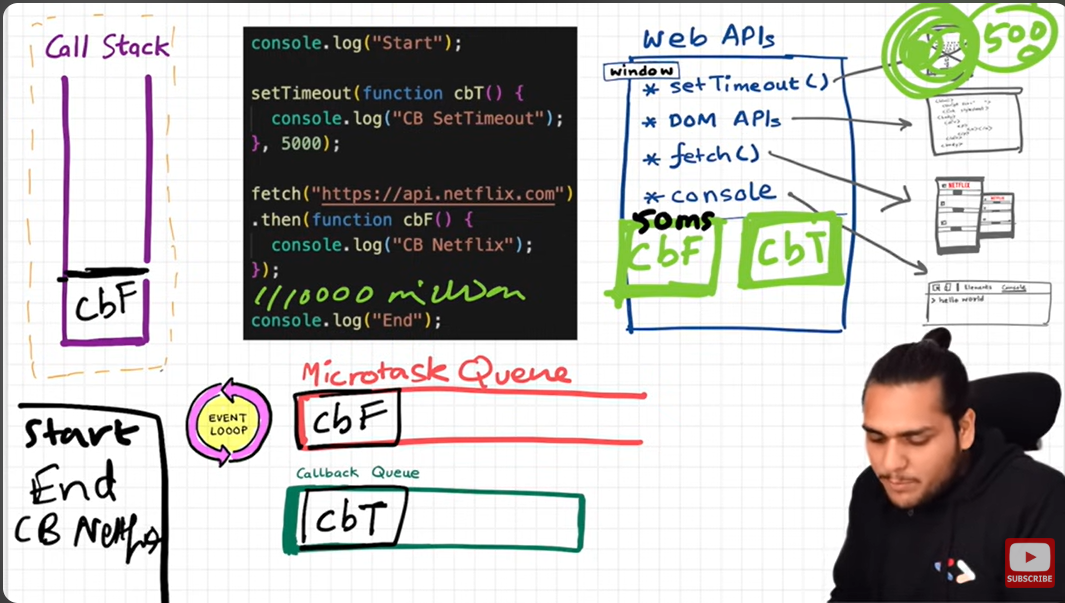 Call Stack
cbF
console.log("Start");
setTimeout(function cbT() {
console.log("CB SetTimeout");
}, 5000);
fetch("https://api.netflix.com")
.then(function cbF() {
console.log("CB Netflix");
});
//10000 million
console.log("End");
Web APIs
window
* setTimeout()
* DOM APIs
* fetch()
* console
50ms
cbF
cbT
500
NETFLIX
Elements Console
> hello world
Microtask Queue
cbF
EVENT
LOOOP
Callback Queue
cbT
Start
End
CB Netflix
SUBSCRIBE